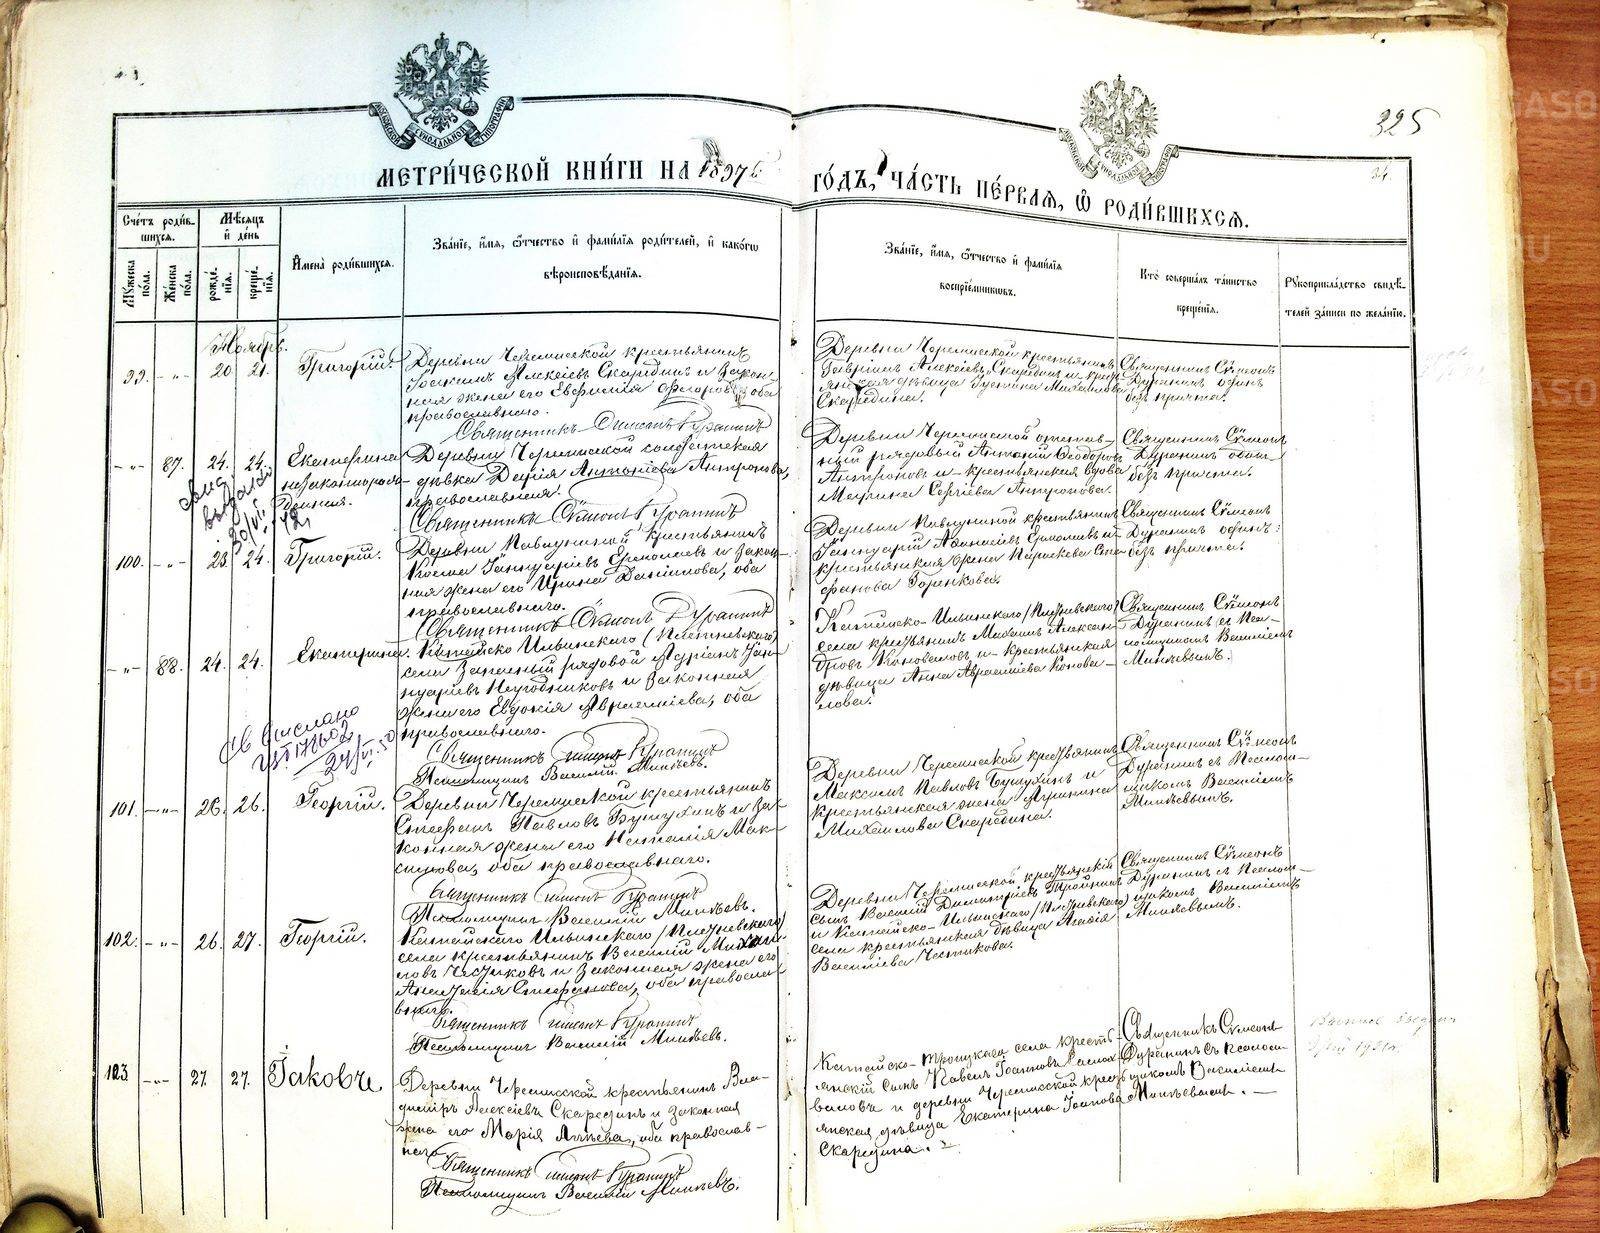 МОСКОВСКОЙ СѴНОДАЛЬНОЙ ТИПОГРАФІИ
325
34.
МЕТРИ́ЧЕСКОЙ КНИ́ГИ НА 1897й ГО́ДЪ, ЧА́СТЬ ПЕ́РВАѦ, Ѡ РОДИ́ВШИХСѦ.
Сче́тъ роди́в-
шихсѧ.
Му́жеска по́ла.
Же́нска по́ла.
Мѣ́сѧцъ и де́нь
рожде́нїѧ.
креще́нїѧ.
Имена̀ роди́вшихсѧ.
Зва́нїе, и́мѧ, ѻ́тчество и фами́лїѧ роди́телей, и како́гѡ
вѣроисповѣ́данїѧ.
Зва́нїе, и́мѧ, ѻ́тчество и фами́лїѧ
воспрїе́мникѡвъ.
Кто̀ соверша́лъ та́инство
креще́нїѧ.
Рукоприкла́дство свидѣ́-
телей за́писи по жела́нїю.
Ноябрь.
99. -"- 20 21. Григорій.
Деревни Черемисской крестьянинъ
Іоакимъ Алексѣевъ Скарединъ и закон
ная жена его Евфимія Ѳедорова, оба
православнаго.
Священникъ Симеонъ Дуранинъ
Деревни Черемисской крестьянинъ
Гавріилъ Алексѣевъ Скарединъ и крест
янская дѣвица Устинья Михайлова
Скаредина.
Священникъ Сѵмеонъ
Дуранинъ одинъ
безъ причта.
-"- 87. 24. 24. Екатерина
незаконнорож-
денная.
Деревни Черемисской солдатская
дѣвка Дарія Антоніева Антропова,
православная.
Священникъ Сѵмеонъ Дуранинъ
Деревни Черемисской отстав-
ный рядовой Антоній Ѳеодоровъ
Антроповъ и крестьянская вдова
Марина Сергіева Антропова.
Священникъ Сѵмеонъ
Дуранинъ одинъ
безъ причта.
20/VII
100. -"- 23. 24. Григорій.
Деревни Павлуниной крестьянинъ
Косма Іаннуаріевъ Ермолаевъ и закон
ная жена его Ирина Даніилова, оба
православнаго.
Священникъ Сѵмеонъ Дуранинъ
Деревни Павлуниной крестьянинъ
Іаннуарій Аѳанасіевъ Ермолаевъ и
крестьянская жена Параскева Сте
фанова Горенкова.
Священникъ Сѵмеонъ
Дуранинъ одинъ
безъ причта.
-"- 88. 24. 24. Екатерина.
Катайско Ильинскаго (Плетневскаго)
села запасный рядовой Адріанъ Іан-
нуаріевъ Негодниковъ и законная
жена его Евдокія Авраамиева, оба
православнаго.
Священникъ Симеонъ Дуранинъ
Псаломщикъ Василій Минѣевъ.
Катайско-Ильинскаго (Плетневскаго)
села крестьянинъ Михаилъ Алексан
дровъ Коноваловъ и крестьянская
дѣвица Анна Авраамиева Конова-
лова.
Священникъ Сѵмеонъ
Дуранинъ съ Пса-
ломщикомъ Василіемъ
Минѣевымъ.
101. -"- 26. 26. Георгій.
Деревни Черемисской крестьянинъ
Стефанъ Павловъ Бунухинъ и за-
конная жена его Наталія Мак-
симова, оба православнаго.
Священникъ Симеонъ Дуранинъ
Псаломщикъ Василій Минѣевъ.
Деревни Черемисской крестьянинъ
Максимъ Павловъ Бунухинъ и
крестьянская жена Агрипина
Михаилова Скаредина.
Священникъ Сѵмеонъ
Дуранинъ съ Псалом-
щикомъ Василіемъ
Минѣевымъ.
102. -"- 26. 27. Георгій.
Катайскаго Ильинскаго (Плетневскаго)
села крестьянинъ Василій Михаи
ловъ Частиковъ и законная жена его
Анастасія Стефанова, оба правосла
внаго.
Священникъ Симеонъ Дуранинъ
Псаломщикъ Василій Минѣевъ.
Деревни Черемисской крестьянскій
сынъ Василій Димитріевъ
и Катайско-Ильинскаго (Плетневскаго)
села крестьянская дѣвица Агаѳія
Василіева Частикова.
Священникъ Сѵмеонъ
Дуранинъ съ Псалом-
щикомъ Василіемъ
Минѣевымъ.
103. -"- 27. 27. Іаковъ
Деревни Черемисской крестьянинъ Вла-
диміръ Алексіевъ Скарединъ и законная
жена его Марія , оба православ-
наго
Священникъ Симеонъ Дуранинъ
Псаломщикъ Василій Минѣевъ.
Катайско-Троицкаго села кресть-
янскій сынъ Павелъ Іоанновъ
и деревни Черемисской крес
янская дѣвица Екатерина Іоанова
Скаредина.
Священникъ Сѵмеонъ
Дуранинъ съ Псалом
щикомъ Василіемъ
Минѣевымъ.